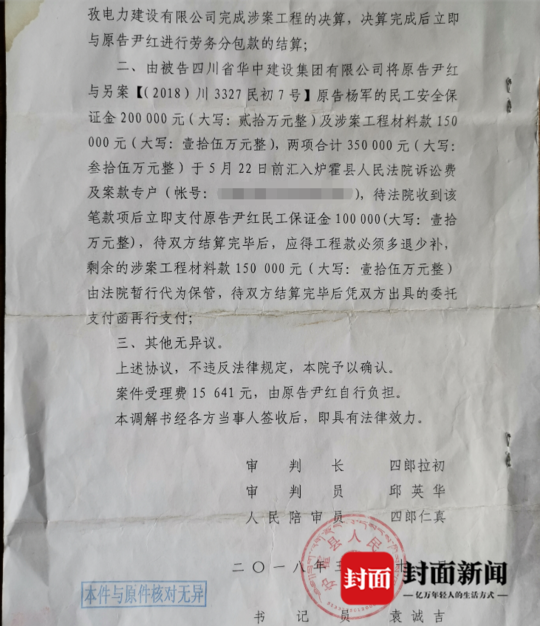 孜电力建设有限公司完成涉案工程的决算，决算完成后立即
与原告尹红进行劳务分包款的结算；
二、由被告四川省华中建设集团有限公司将原告尹红
与另案【（2018）川 3327 民初 7 号】原告杨军的民工安全保
证金 200 000 元（大写：贰拾万元整）及涉案工程材料款 150
000 元（大写：壹拾伍万元整），两项合计 350 000 元（大写：
叁拾伍万元整）于 5 月 22 日前汇入炉霍县人民法院诉讼费
及案款专户（帐号：），待法院收到该
笔款项后立即支付原告尹红民工保证金 100 000(大写：壹拾
万元整)，待双方结算完毕后，应得工程款必须多退少补，
剩余的涉案工程材料款 150 000 元（大写：壹拾伍万元整）
由法院暂行代为保管，待双方结算完毕后凭双方出具的委托
支付函再行支付；
三、其他无异议。
上述协议，不违反法律规定，本院予以确认。
案件受理费 15 641 元，由原告尹红自行负担。
本调解书经各方当事人签收后，即具有法律效力。
审 判 长 四郎拉初
审 判 员 邱英华
人民陪审员 四郎仁真
二〇一八年
霍县人民
封面
封面新闻
亿万年轻人的生活方式
本件与原件核对无异
书 记 员 袁诚吉